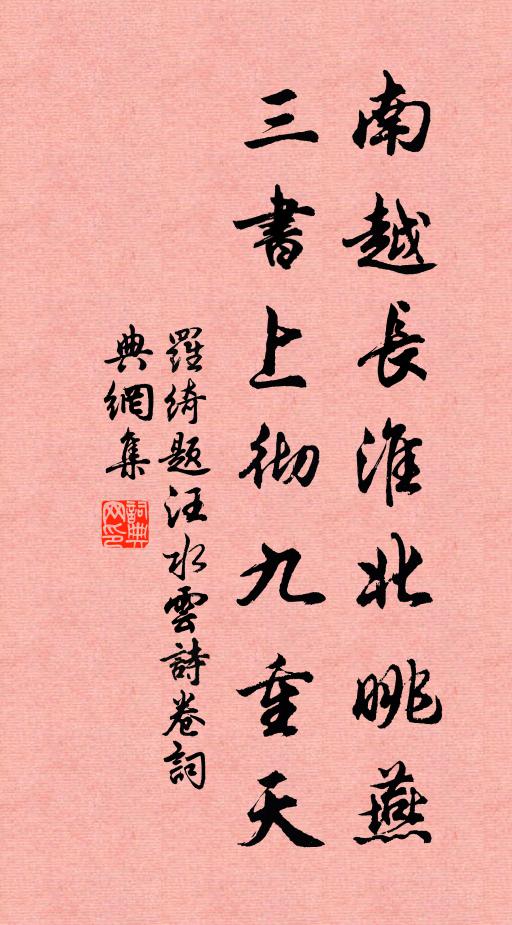 南越長淮北眺燕
三書上彻九重天
羅綺题汪水雲詩卷詞
典網集
詞典网印